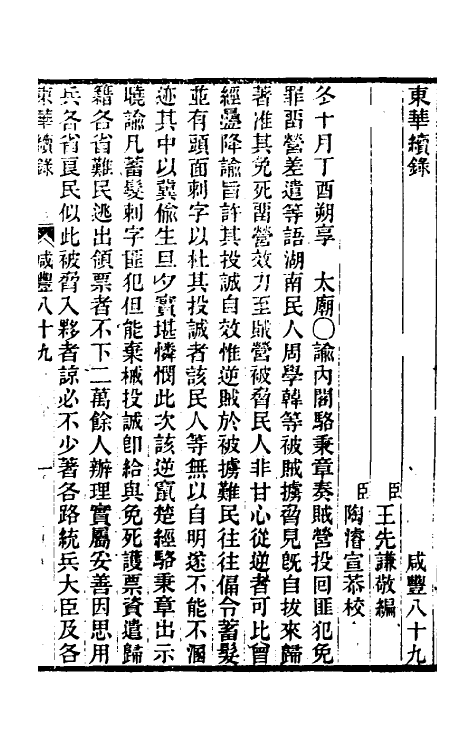 東華續錄　咸豐八十九
臣王先謙敬編
臣陶濬宣恭校
冬十月丁酉朔享　太廟〇諭內閣駱秉章奏賊營投回匪犯免
罪畱營差遣等語湖南民人周學韓等被賊擄脅見旣自拔來歸
著准其免死畱營效力至賊營被脅民人非甘心從逆者可比曾
經疊降諭旨許其投誠自效惟逆賊於被擄難民往往偪令蓄髮
並有頭面刺字以杜其投誠者該民人等無以自明遂不能不溷
迹其中以冀偷生旦夕實堪憐憫此次該逆竄楚經駱秉章出示
曉諭凡蓄髮刺字匪犯但能棄械投誠卽給與免死護票資遣歸
籍各省難民逃出領票者不下二萬餘人辦理實屬妥善因思用
兵各省良民似此被脅入夥者諒必不少著各路統兵大臣及各
東華續錄　咸豐八十九　一